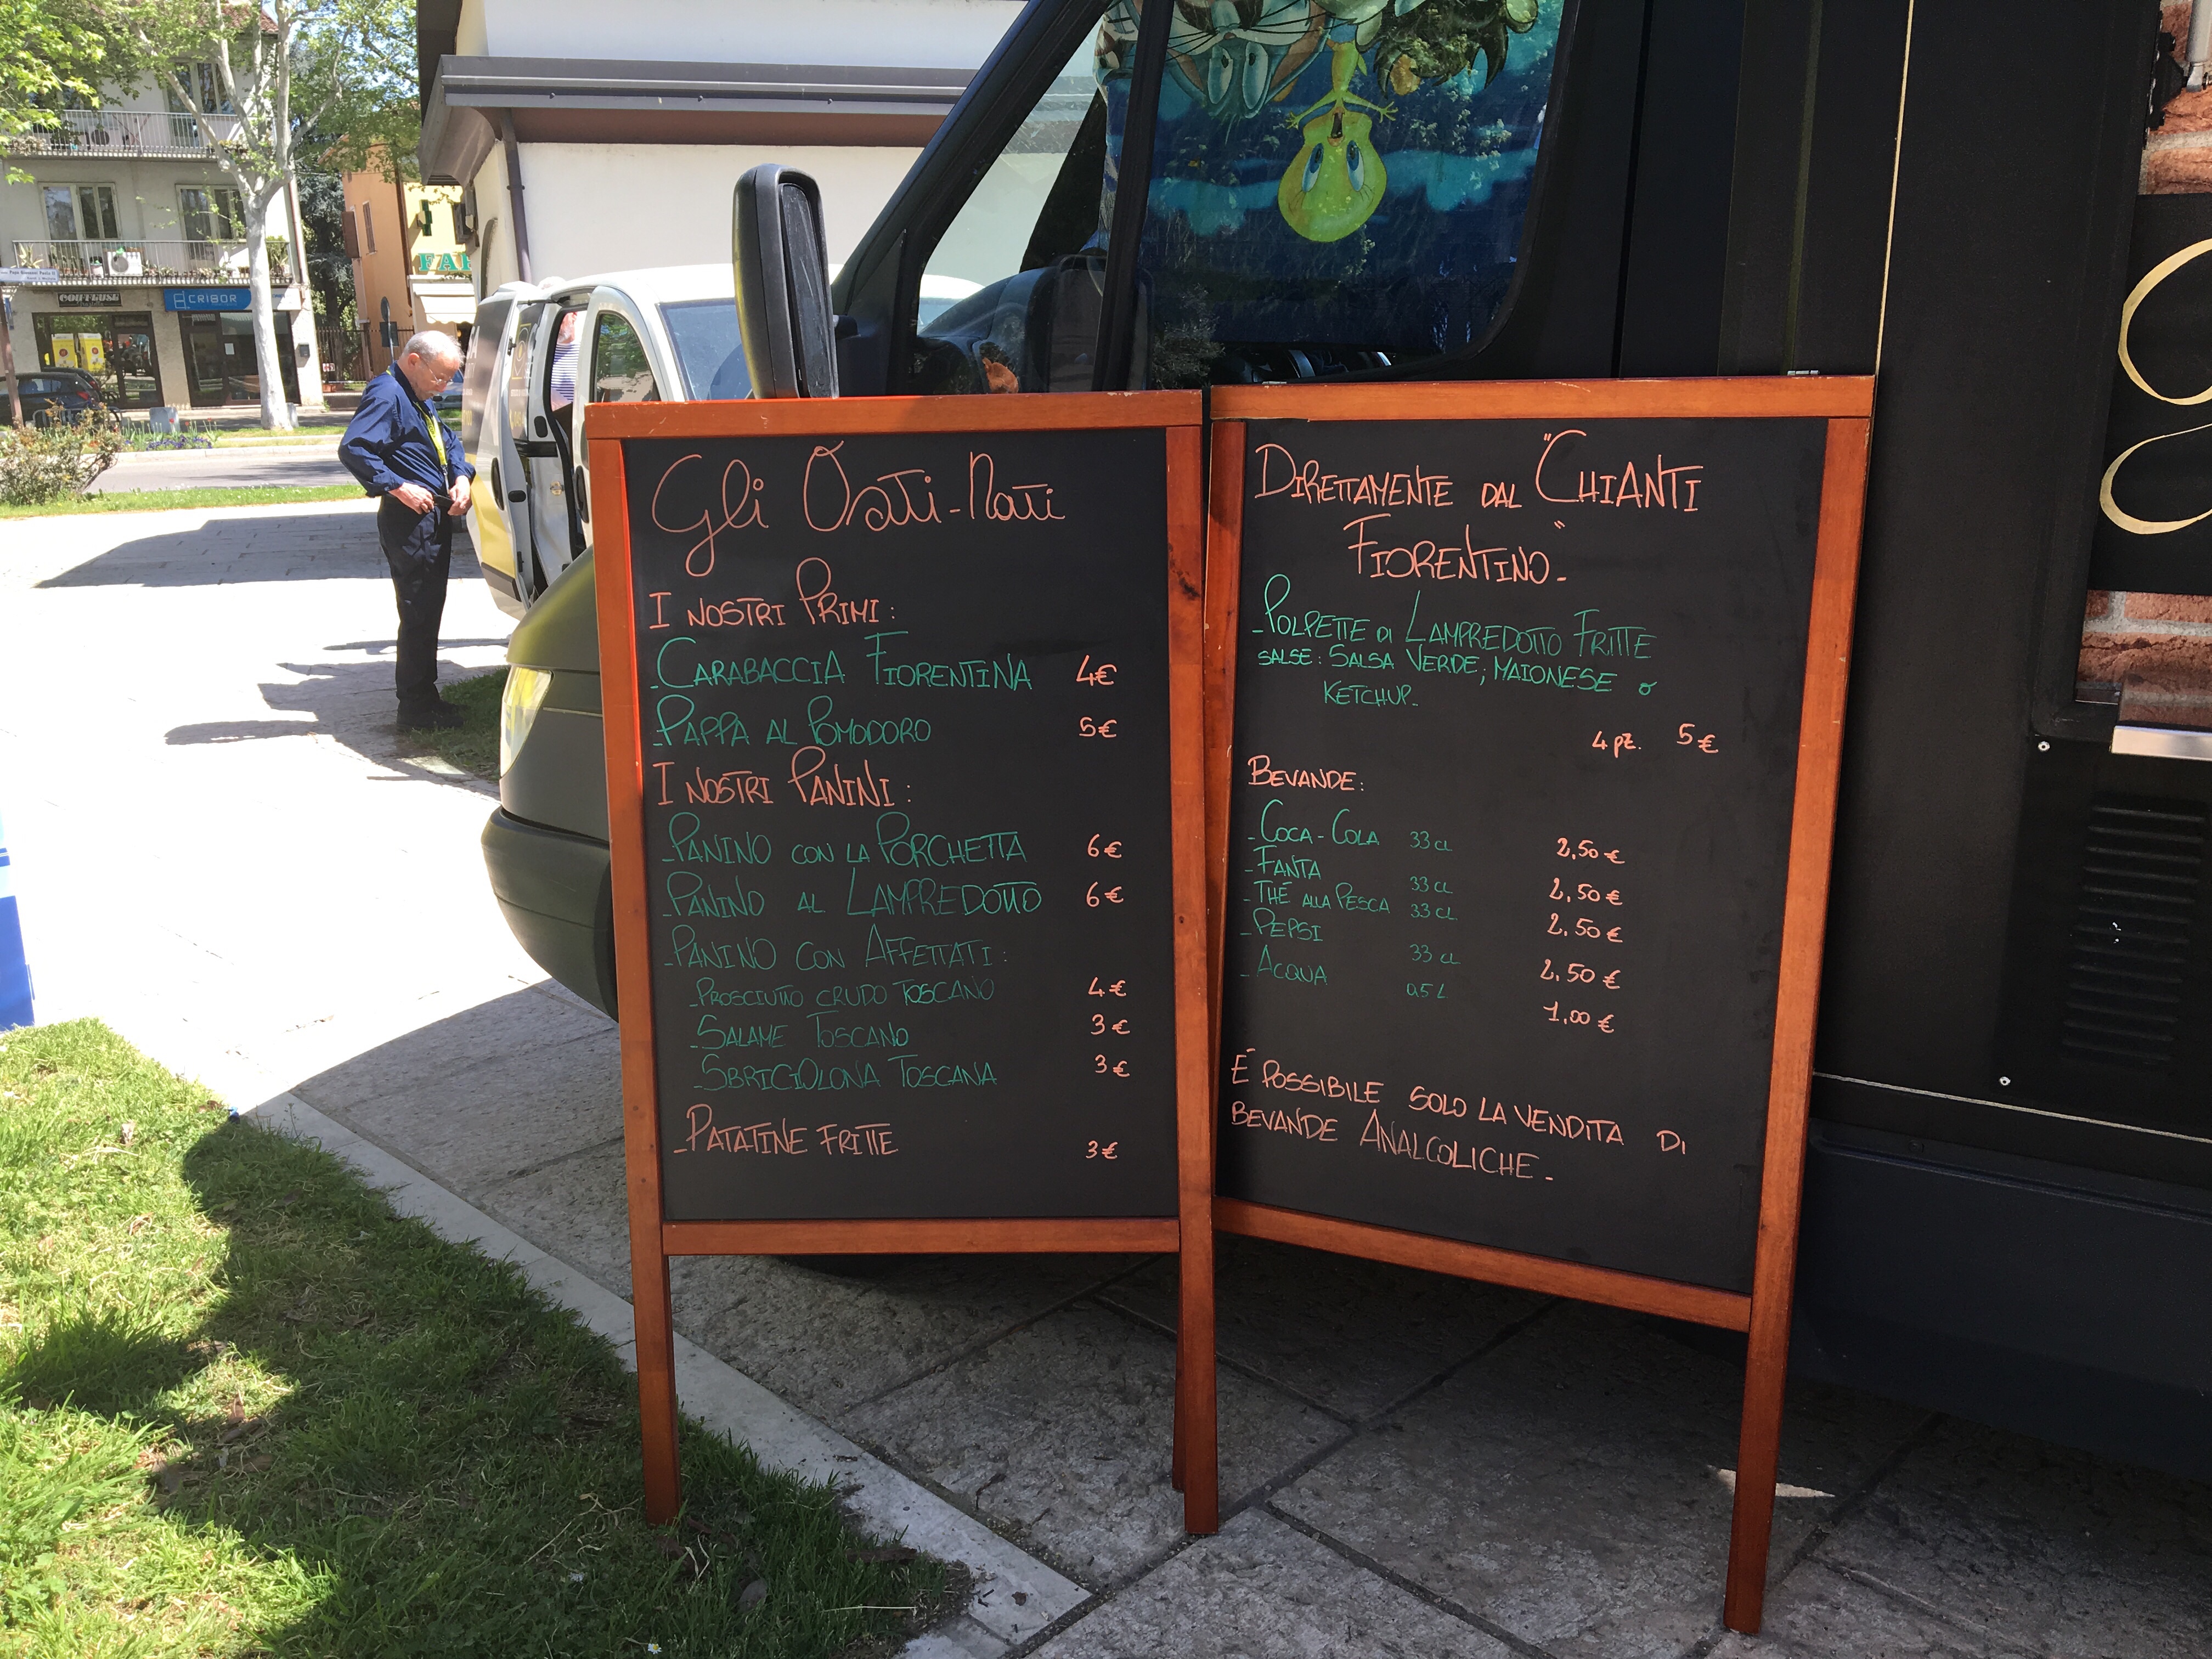 COIFFEUSE
CRIBOR
FAR
Gli Osti-Nati
I NOSTRI PRIMI:
- CARABACCIA FIORENTINA 4€
- PAPPA AL POMODORO 5€
I NOSTRI PANINI:
- PANINO CON LA PORCHETTA 6€
- PANINO AL LAMPREDOTTO 6€
- PANINO CON AFFETTATI:
- PROSCIUTTO CRUDO TOSCANO 4€
- SALAME TOSCANO 3€
- SBRICIOLONA TOSCANA 3€
- PATATINE FRITTE 3€
DIRETTAMENTE DAL "CHIANTI
FIORENTINO" -
- POLPETTE DI LAMPREDOTTO FRITTE
SALSE: SALSA VERDE; MAIONESE o
KETCHUP.
4 PZ. 5€
BEVANDE:
- COCA-COLA 33 CL 2,50€
- FANTA 33 CL 2,50€
- THÉ ALLA PESCA 33 CL 2,50€
- PEPSI 33 CL 2,50€
- ACQUA 0,5 L 1,00€
É POSSIBILE SOLO LA VENDITA DI
BEVANDE ANALCOLICHE -